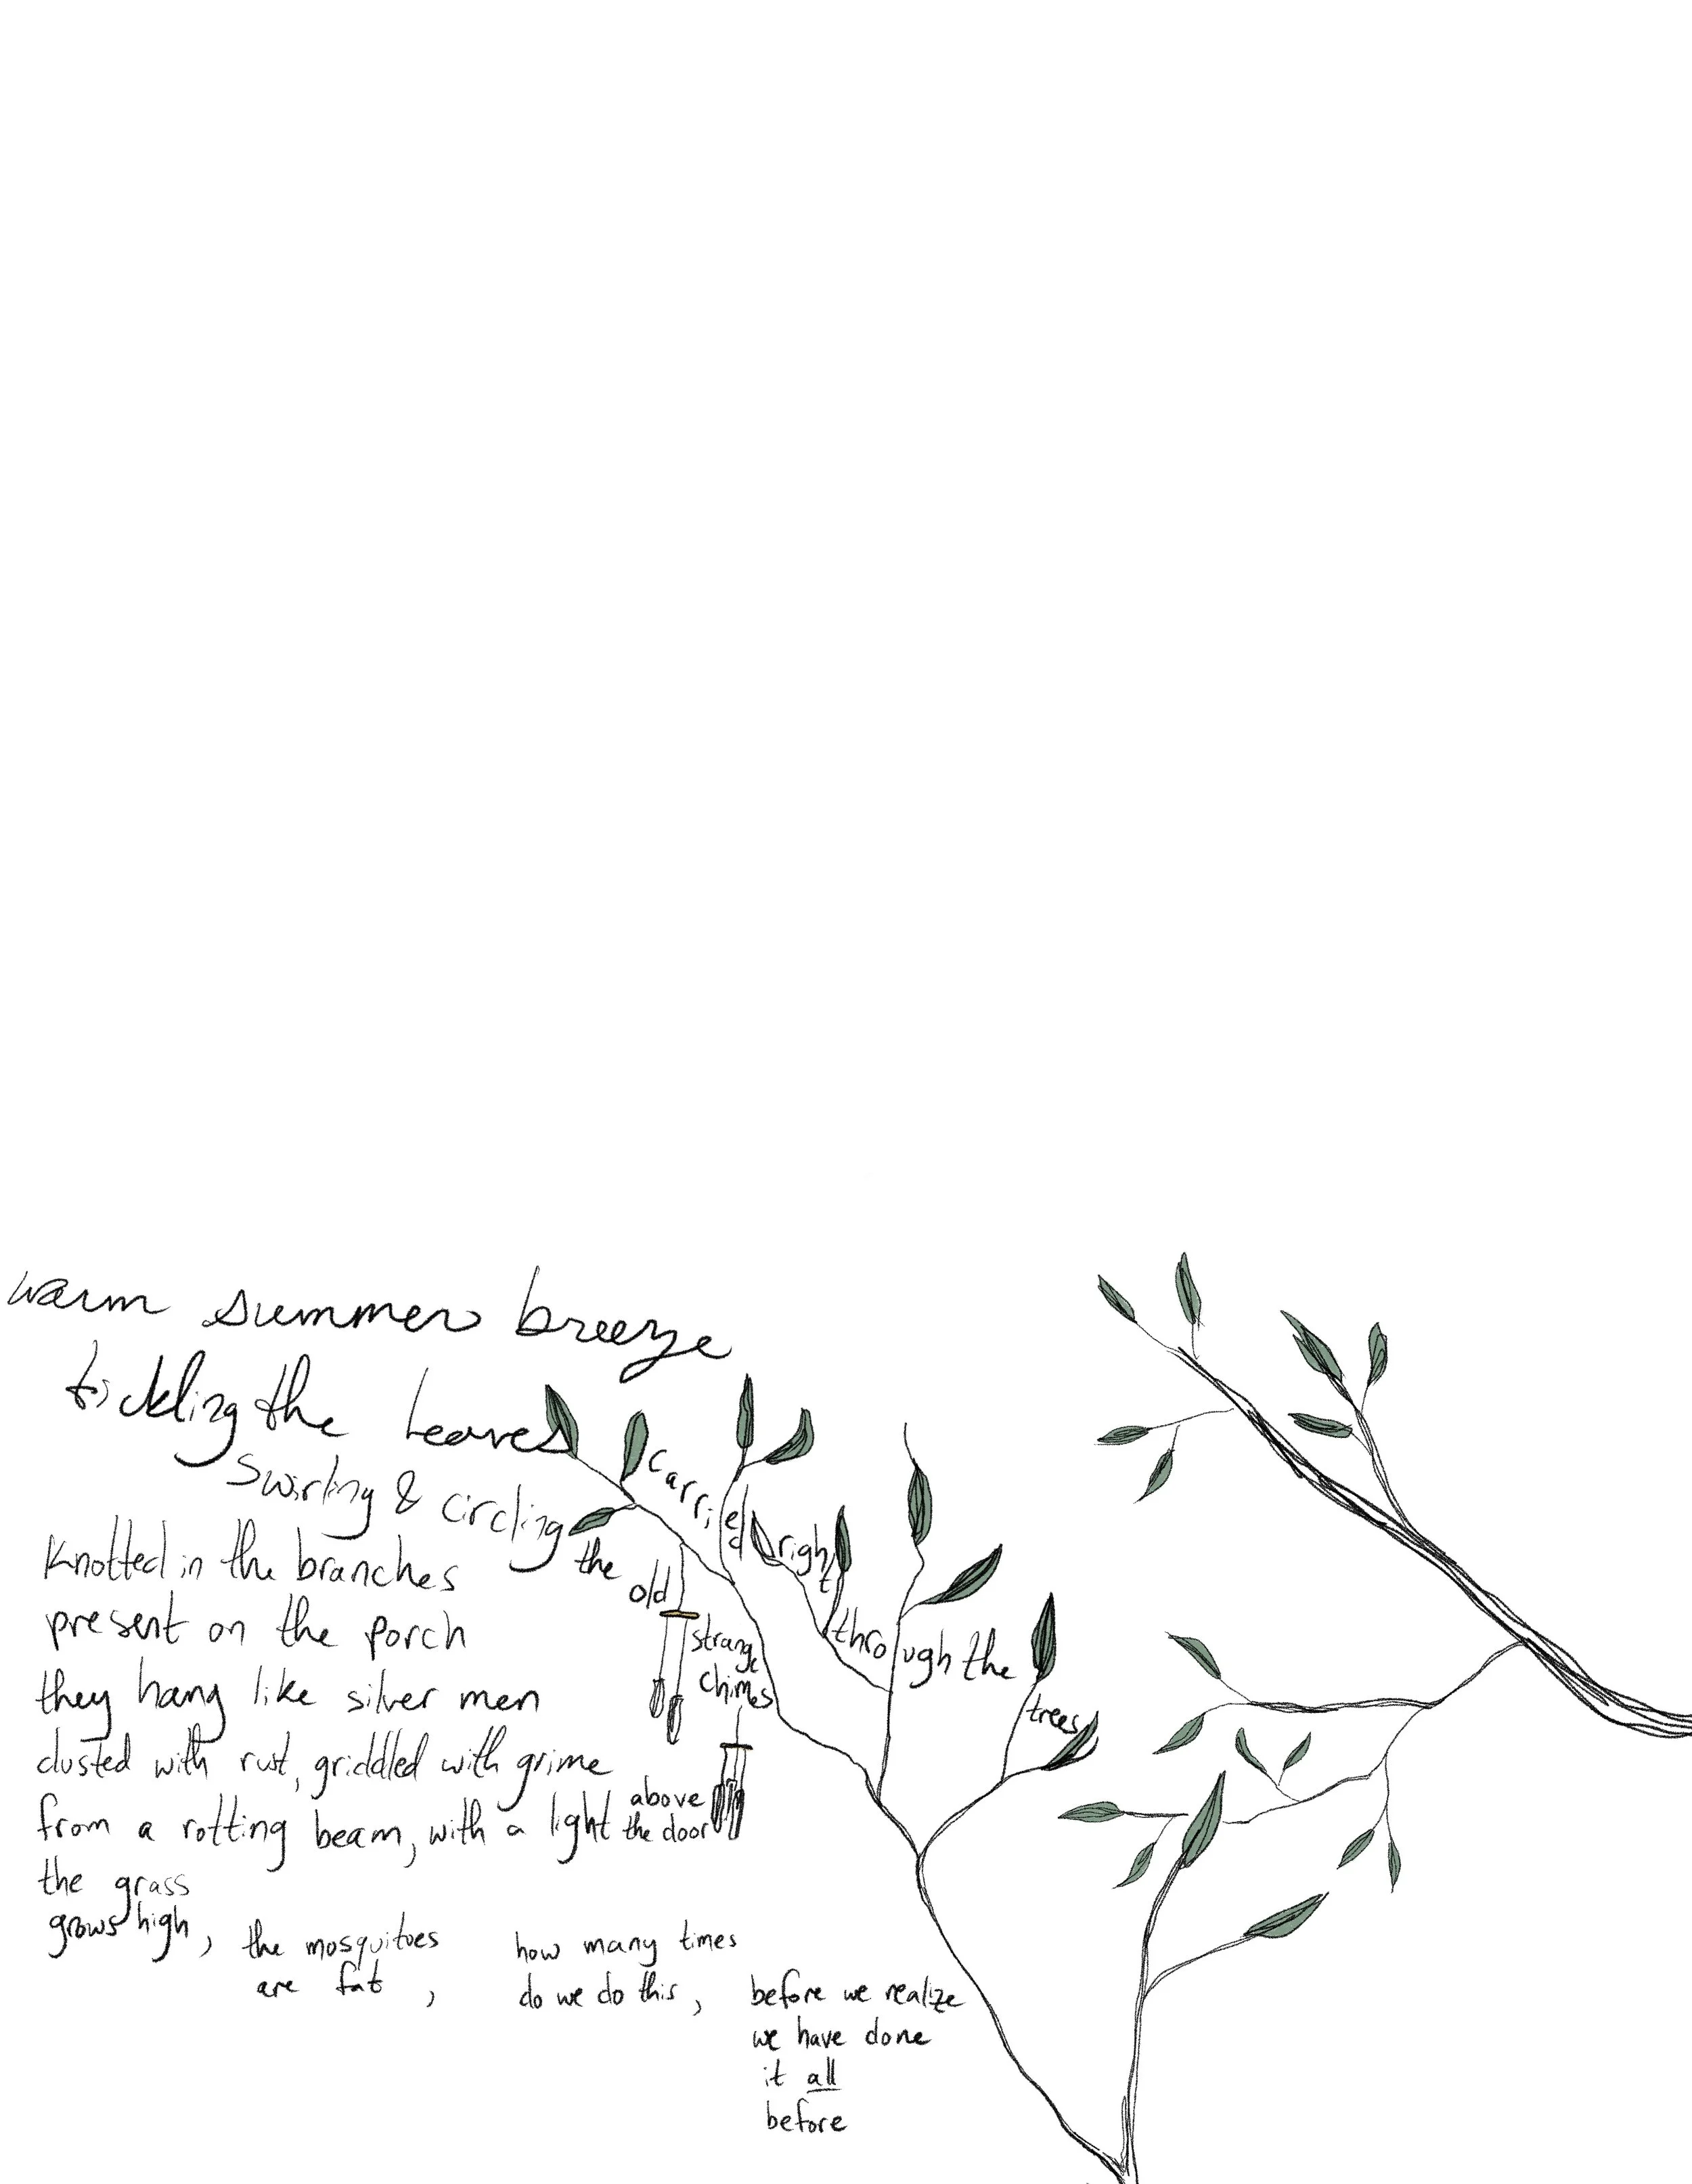 warm summer breeze
tickling the leaves
carried right through the trees
swirling & circling
the old strange chimes
Knotted in the branches
present on the porch
they hang like silver men
dusted with rust, griddled with grime
from a rotting beam, with a light above the door
the grass
grows high,
the mosquitoes
are fat,
how many times
do we do this,
before we realize
we have done
it all
before